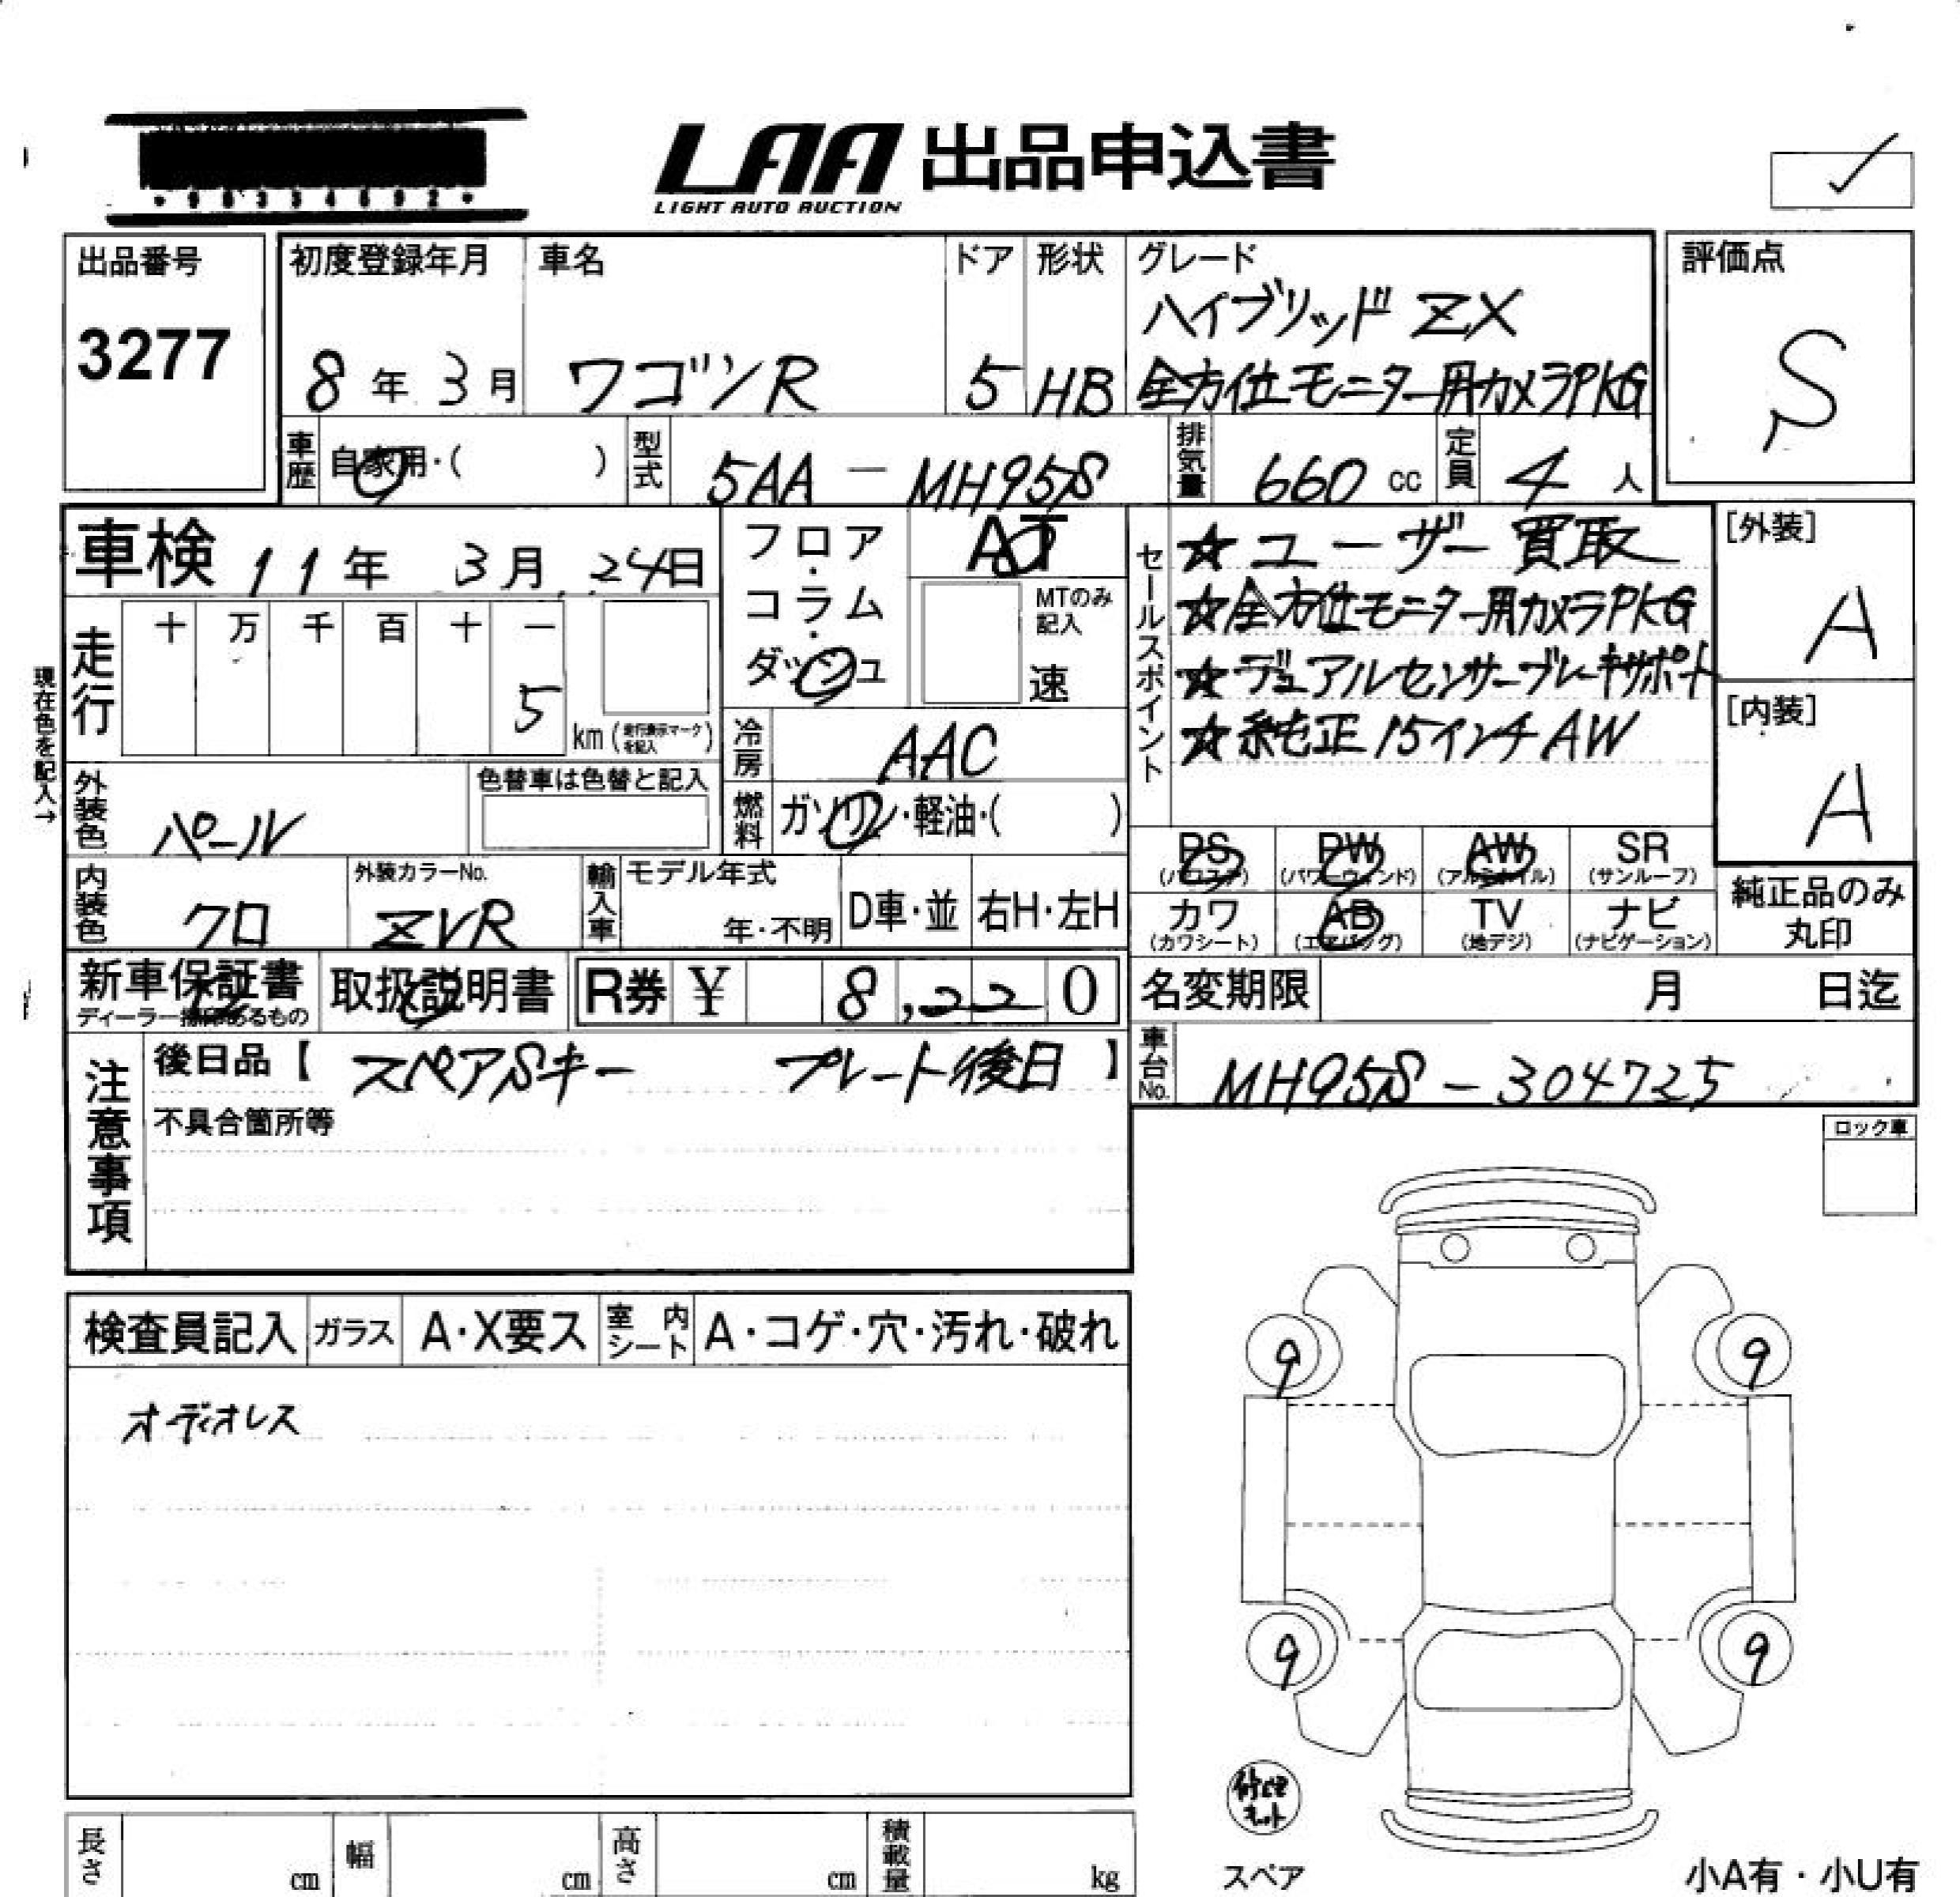 LAA 出品申込書
LIGHT AUTO AUCTION
出品番号
3277
初度登録年月
8年 3月
車名
ワゴンR
ドア
5
形状
HB
グレード
ハイブリッド ZX
全方位モニター用カメラPKG
評価点
S
車歴
自家用・( )
型式
5AA - MH95S
排気量
660 cc
定員
4 人
車検 11年 3月 24日
フロア・コラム・ダッシュ
AT
MTのみ記入
速
走行
十 万 千 百 十 一
5
km (走行表示マークを記入)
現在色を記入→
セールスポイント
☆ユーザー買取
☆全方位モニター用カメラPKG
☆デュアルセンサーブレーキサポート
☆純正15インチAW
[外装]
A
[内装]
A
冷房
AAC
燃料
ガソリン・軽油・( )
外装色
パール
色替車は色替と記入
内装色
クロ
外装カラーNo.
ZVR
輸入車
モデル年式
年・不明
D車・並
右H・左H
PS (パワステ)
PW (パワーウィンド)
AW (アルミホイル)
SR (サンルーフ)
カワ (カワシート)
AB (エアバッグ)
TV (地デジ)
ナビ (ナビゲーション)
純正品のみ丸印
新車保証書
ディーラー捺印あるもの
取扱説明書
R券 ¥ 8,220
名変期限 月 日迄
車台No.
MH95S - 304725
注意事項
後日品【 スペアSキー プレート後日 】
不具合箇所等
ロック車
検査員記入
ガラス
A・X要ス
室内シート
A・コゲ・穴・汚れ・破れ
オーディオレス
9
9
9
9
スペア
長さ cm
幅 cm
高さ cm
積載量 kg
小A有・小U有